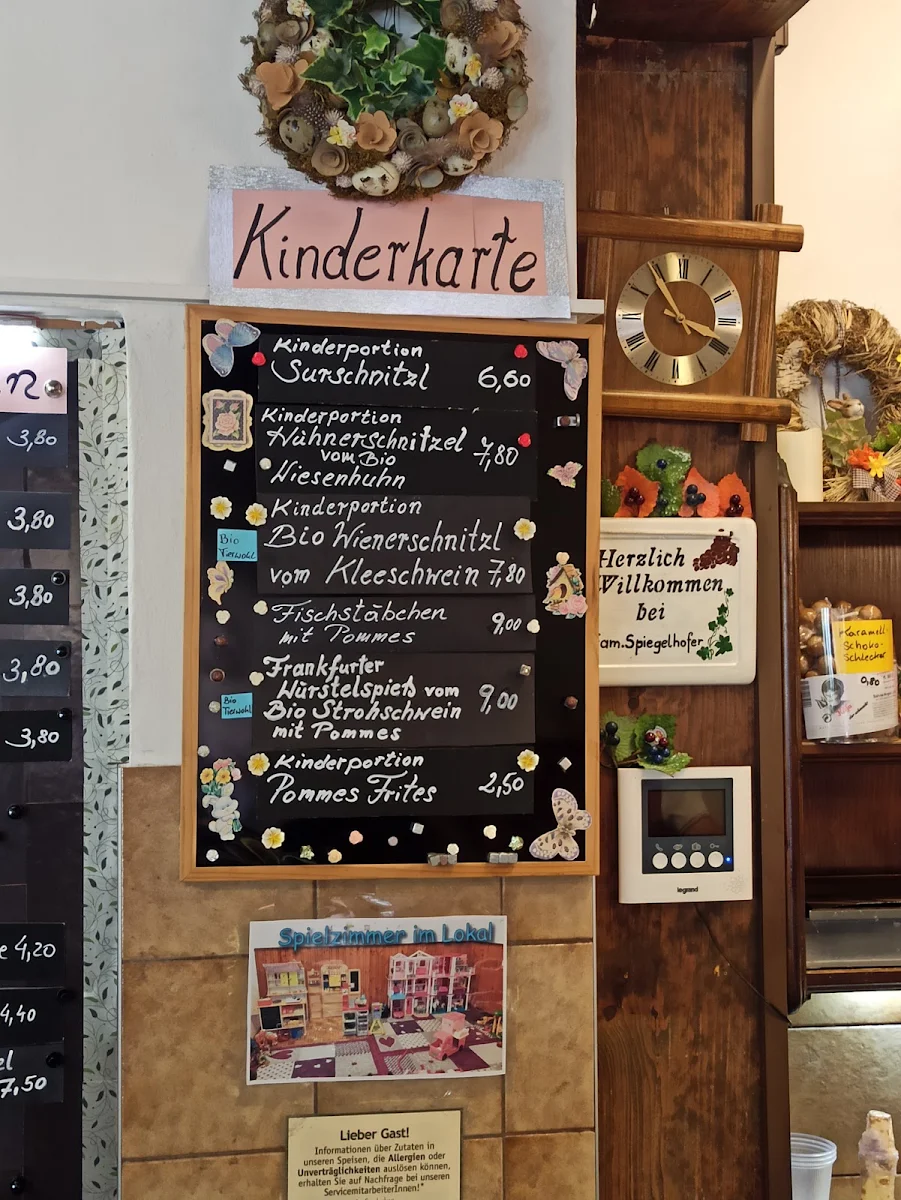 Kinderkarte
Kinderportion
Surschnitzl 6,60
Kinderportion
Hühnerschnitzel 7,80
vom Bio
Wiesenhuhn
Kinderportion
Bio Wienerschnitzl
vom Kleeschwein 7,80
Bio
Tierwohl
Fischstäbchen 9,00
mit Pommes
Frankfurter
Würstelspieß vom
Bio Strohschwein 9,00
mit Pommes
Bio
Tierwohl
Kinderportion
Pommes Frites 2,50
3,80
3,80
3,80
3,80
3,80
e 4,20
4,40
el
7,50
Herzlich
Willkommen
bei
am.Spiegelhofer
Karamell-
Schoko-
Schlecker
0,80
legrand
Spielzimmer im Lokal
Lieber Gast!
Informationen über Zutaten in
unseren Speisen, die Allergien oder
Unverträglichkeiten auslösen können,
erhalten Sie auf Nachfrage bei unseren
ServicemitarbeiterInnen!*